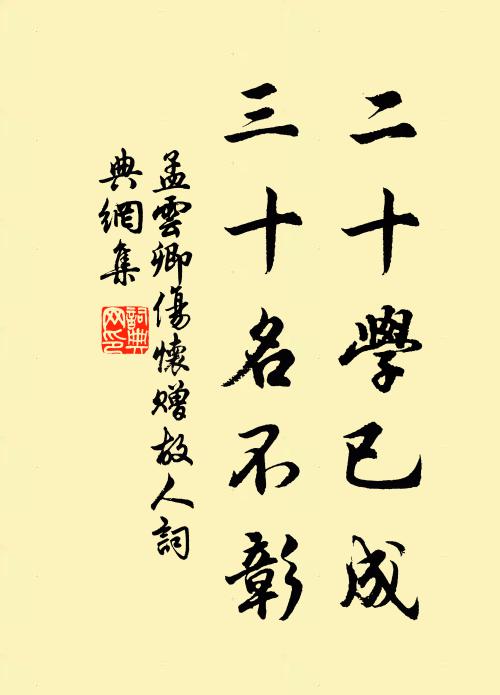 二十學已成
三十名不彰
孟雲卿傷懷贈故人詞
典網集
詞典
网印